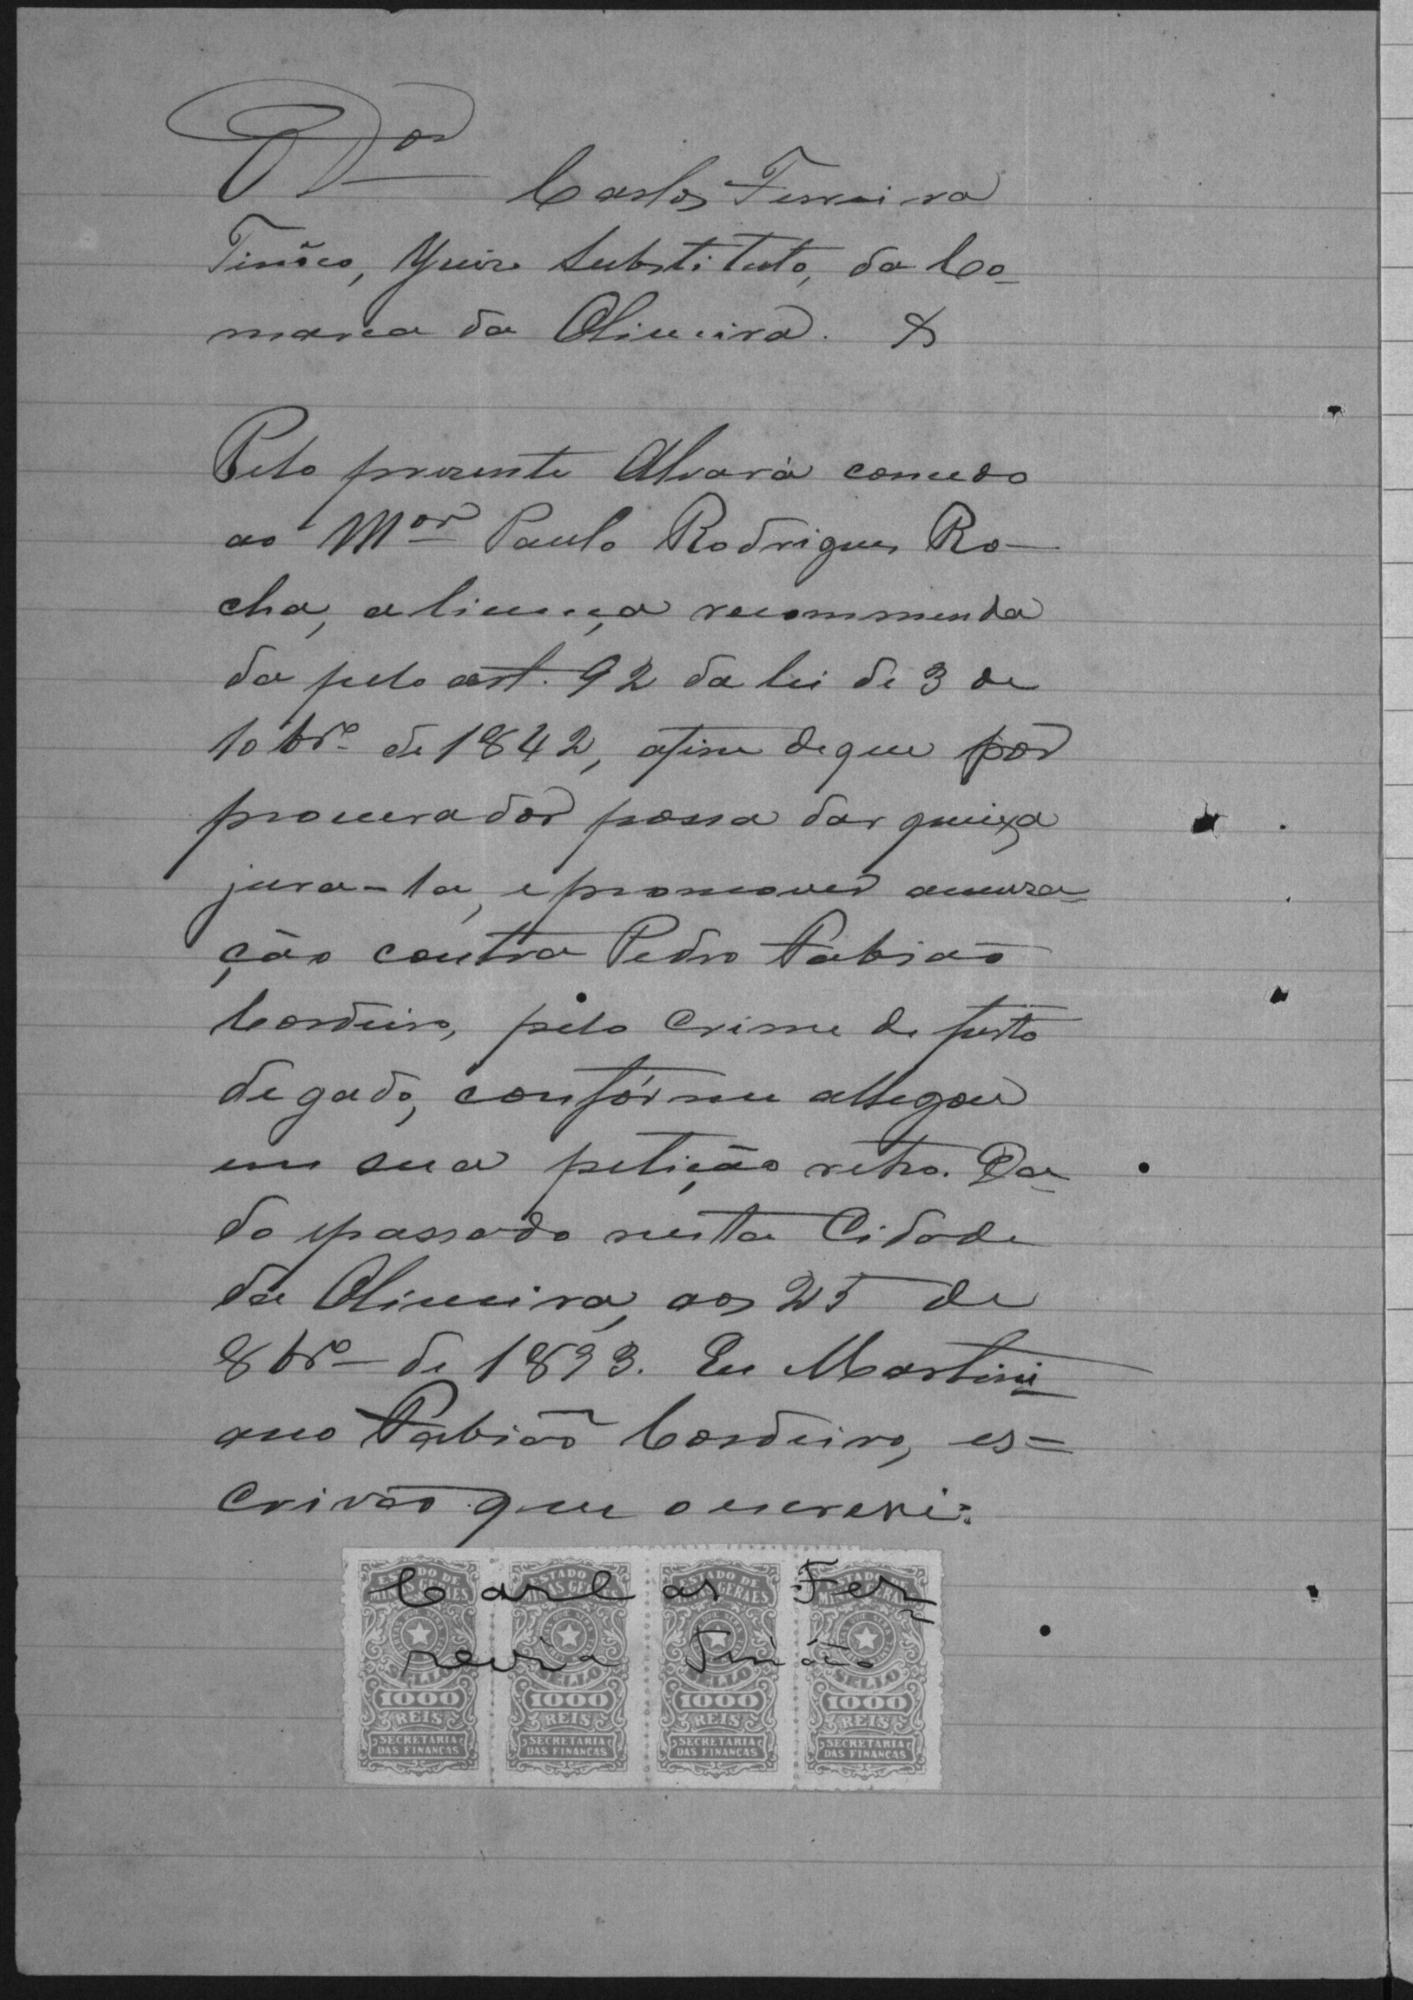 O Dor Carlos Ferreira
Tinôco, Juiz Substituto, da Co-
marca da Oliveira. &
Pelo prezente Alvará concedo
ao Mor Paulo Rodrigues Ro-
cha, a licença recommenda
da pelo art. 92 da lei de 3 de
10brº de 1842, afim de que por
procurador possa dar queixa
jura-la, e promover accuza-
ção contra Pedro Fabião
Cordeiro, pelo crime de furto
de gado, confórme allegou
em sua petição retro. Da-
do e passado nesta Cidade
da Oliveira, aos 25 de
8brº de 1893. Eu Martini-
ano Fabião Cordeiro, es=
crivão que o escrevi.
Carlos Fer-
reira Tinôco
ESTADO DE MINAS GERAES ESTADO DE MINAS GERAES ESTADO DE MINAS GERAES ESTADO DE MINAS GERAES
SELLO SELLO SELLO SELLO
1000 1000 1000 1000
REIS REIS REIS REIS
SECRETARIA SECRETARIA SECRETARIA SECRETARIA
DAS FINANÇAS DAS FINANÇAS DAS FINANÇAS DAS FINANÇAS